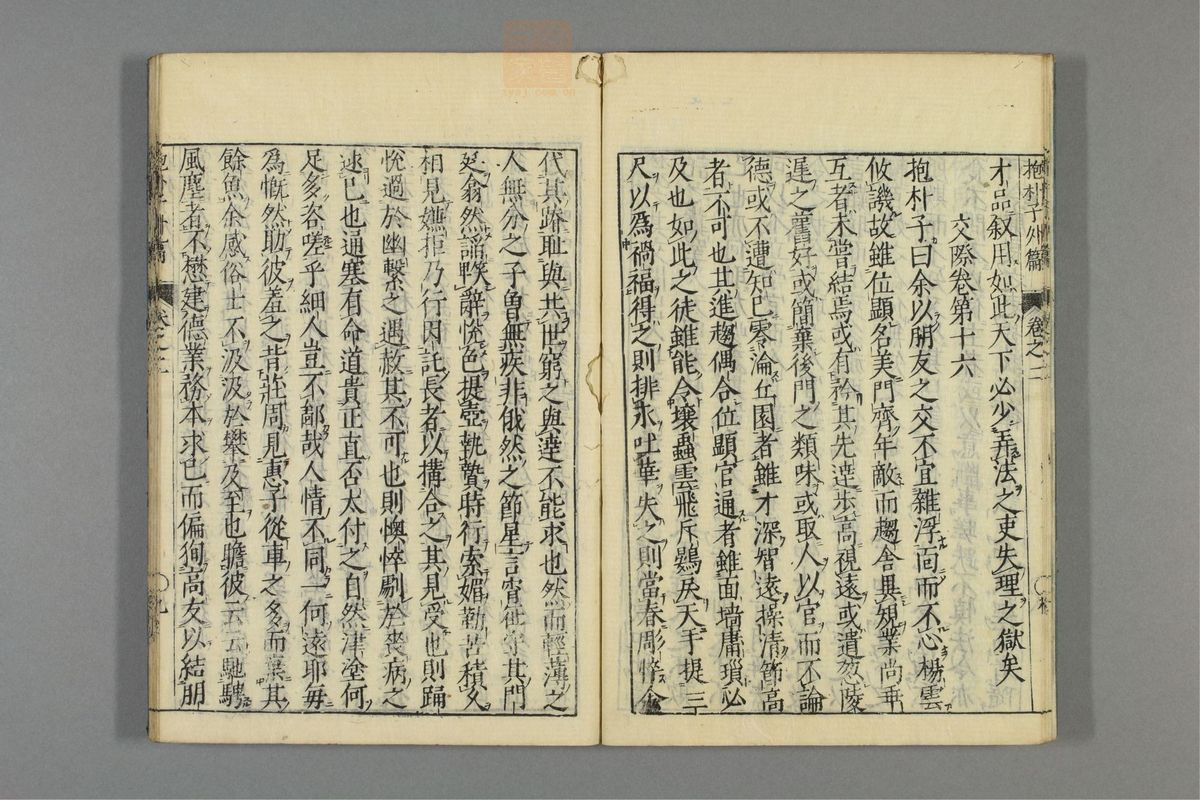 抱朴子外篇 卷之二
才品叙用如此天下必少弄法之吏失理之獄矣
交際卷第十六
抱朴子曰余以朋友之交不宜雜浮面而不心楊雲
攸譏故雖位顯名美門齊年敵而趨舍異規業尚乖
互者未嘗結焉或有矜其先達步高視遠或遺忽陵
遲之舊好或簡棄後門之類味或取人以官而不論
德或不遭知己零淪丘園者雖才深智遠操清節高
者不可也其進趨偶合位顯官通者雖面墙庸瑣必
及也如此之徒雖能令壤蟲雲飛斥鷃戾天手提三
尺以爲禍福得之則排氷吐華失之則當春彫悴余
代其踧耻與共世窮之與達不能求也然而輕薄之
人無分之子曾無疾非俄然之節星言宵征守其門
廷翕然諂笑辭悅色提壺執贄時行索媚勤苦積久
相見嫌拒乃行因託長者以搆合之其見受也則踊
悅過於幽繫之遇赦其不可也則懊悴劇於喪病之
逮已也通塞有命道貴正直否太付之自然津塗何
足多咨嗟乎細人豈不鄙哉人情不同一何遠耶每
爲慨然助彼羞之昔莊周見惠子從車之多而棄其
餘魚余感俗士不汲汲於攀及至也瞻彼云云馳騁
風塵者不懋建德業務本求己而偏徇高友以結朋